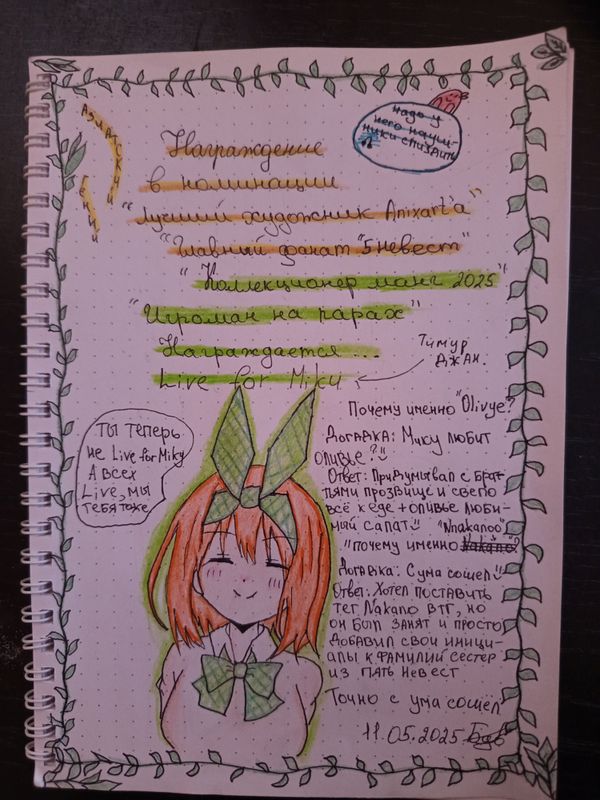 Азиатский
Гений
надо у
него науш-
ники спиздить
Награждение
в номинации
"Лучший художник Anixart'a"
"Главный фанат "5 невест"
"Коллекционер манг 2025"
"Игроман на парах"
Награждается ...
Live for Miku
Тимур
Джан.
Ты теперь
не Live for Miky
А всех
Live, мы
тебя тоже
Почему именно "Olivye?
Догадка: Мику любит
оливье?
Ответ: Придумывал с брат-
ьями прозвище и свело
всё к еде + оливье люби-
мый салат "Nnakanoo"
"почему именно Nakano?
Догадка: Сума сошел
Ответ: Хотел поставить
тег Nakano в тг, но
он был занят и просто
добавил свои иници-
алы к фамилий сестер
из пять невест
Точно с ума сошел
11.05.2025